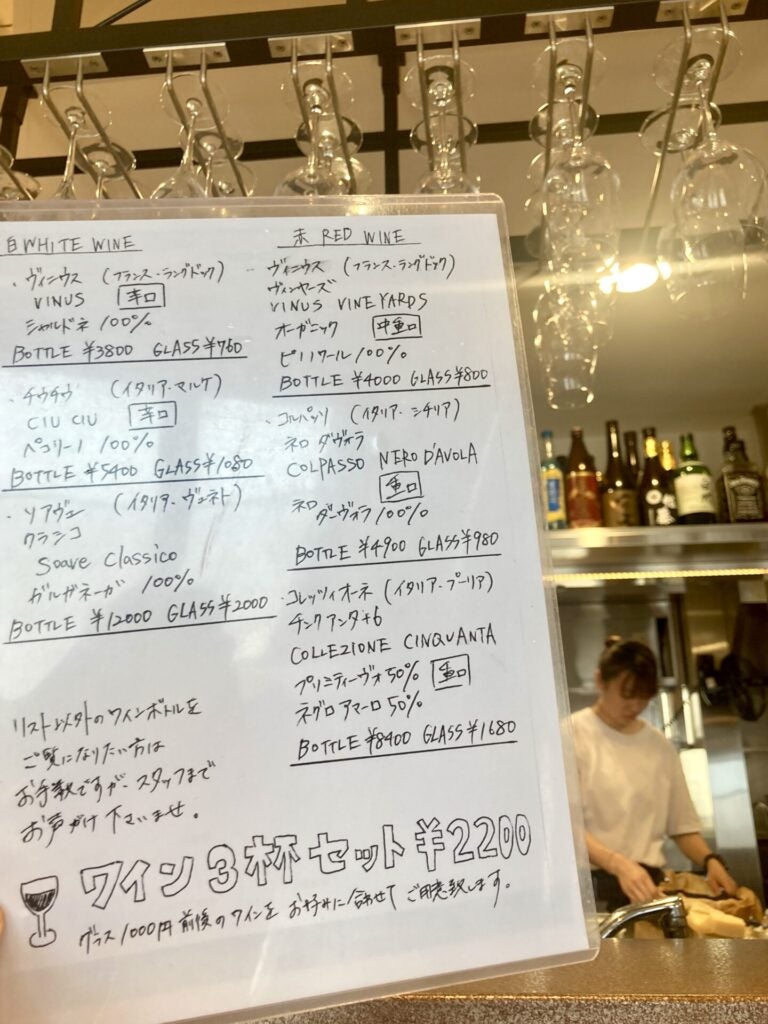 白 WHITE WINE
・ヴィニウス (フランス・ラングドック)
VINUS 辛口
シャルドネ 100%
BOTTLE ¥3800 GLASS ¥760
・チウチウ (イタリア・マルケ)
CIU CIU 辛口
ペコリーノ 100%
BOTTLE ¥5400 GLASS ¥1080
・ソアヴェ (イタリア・ヴェネト)
クラシコ
Soave Classico
ガルガネーガ 100%
BOTTLE ¥12000 GLASS ¥2000
リスト以外のワインボトルを
ご覧になりたい方は
お手数ですが、スタッフまで
お声がけ下さいませ。
赤 RED WINE
・ヴィニウス (フランス・ラングドック)
ヴィンヤーズ
VINUS VINEYARDS
オーガニック 中重口
ピノノワール 100%
BOTTLE ¥4000 GLASS ¥800
・コルパッソ (イタリア・シチリア)
ネロ ダヴォラ
COLPASSO NERO D'AVOLA
重口
ネロ
ダーヴォラ 100%
BOTTLE ¥4900 GLASS ¥980
・コレッツィオーネ (イタリア・プーリア)
チンクアンタ+6
COLLEZIONE CINQUANTA
プリミティーヴォ 50% 重口
ネグロアマーロ 50%
BOTTLE ¥8400 GLASS ¥1680
ワイン3杯セット ¥2200
グラス1000円前後のワインを お好みに合わせて ご用意致します。